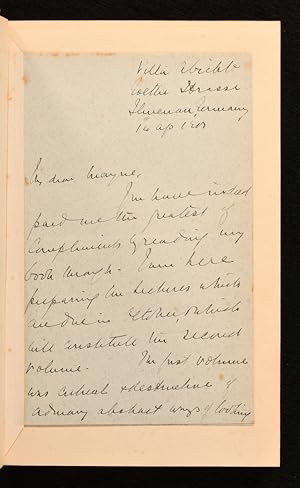 Villa
Goethe Strasse
Ilmenau, Germany
14 Ap
My dear Mayne,
You have indeed
paid me the greatest of
compliments by reading my
book through. I am here
preparing the lectures which
are due in October, which
will constitute the second
volume. The first volume
was critical & destructive of
ordinary abstract ways of looking